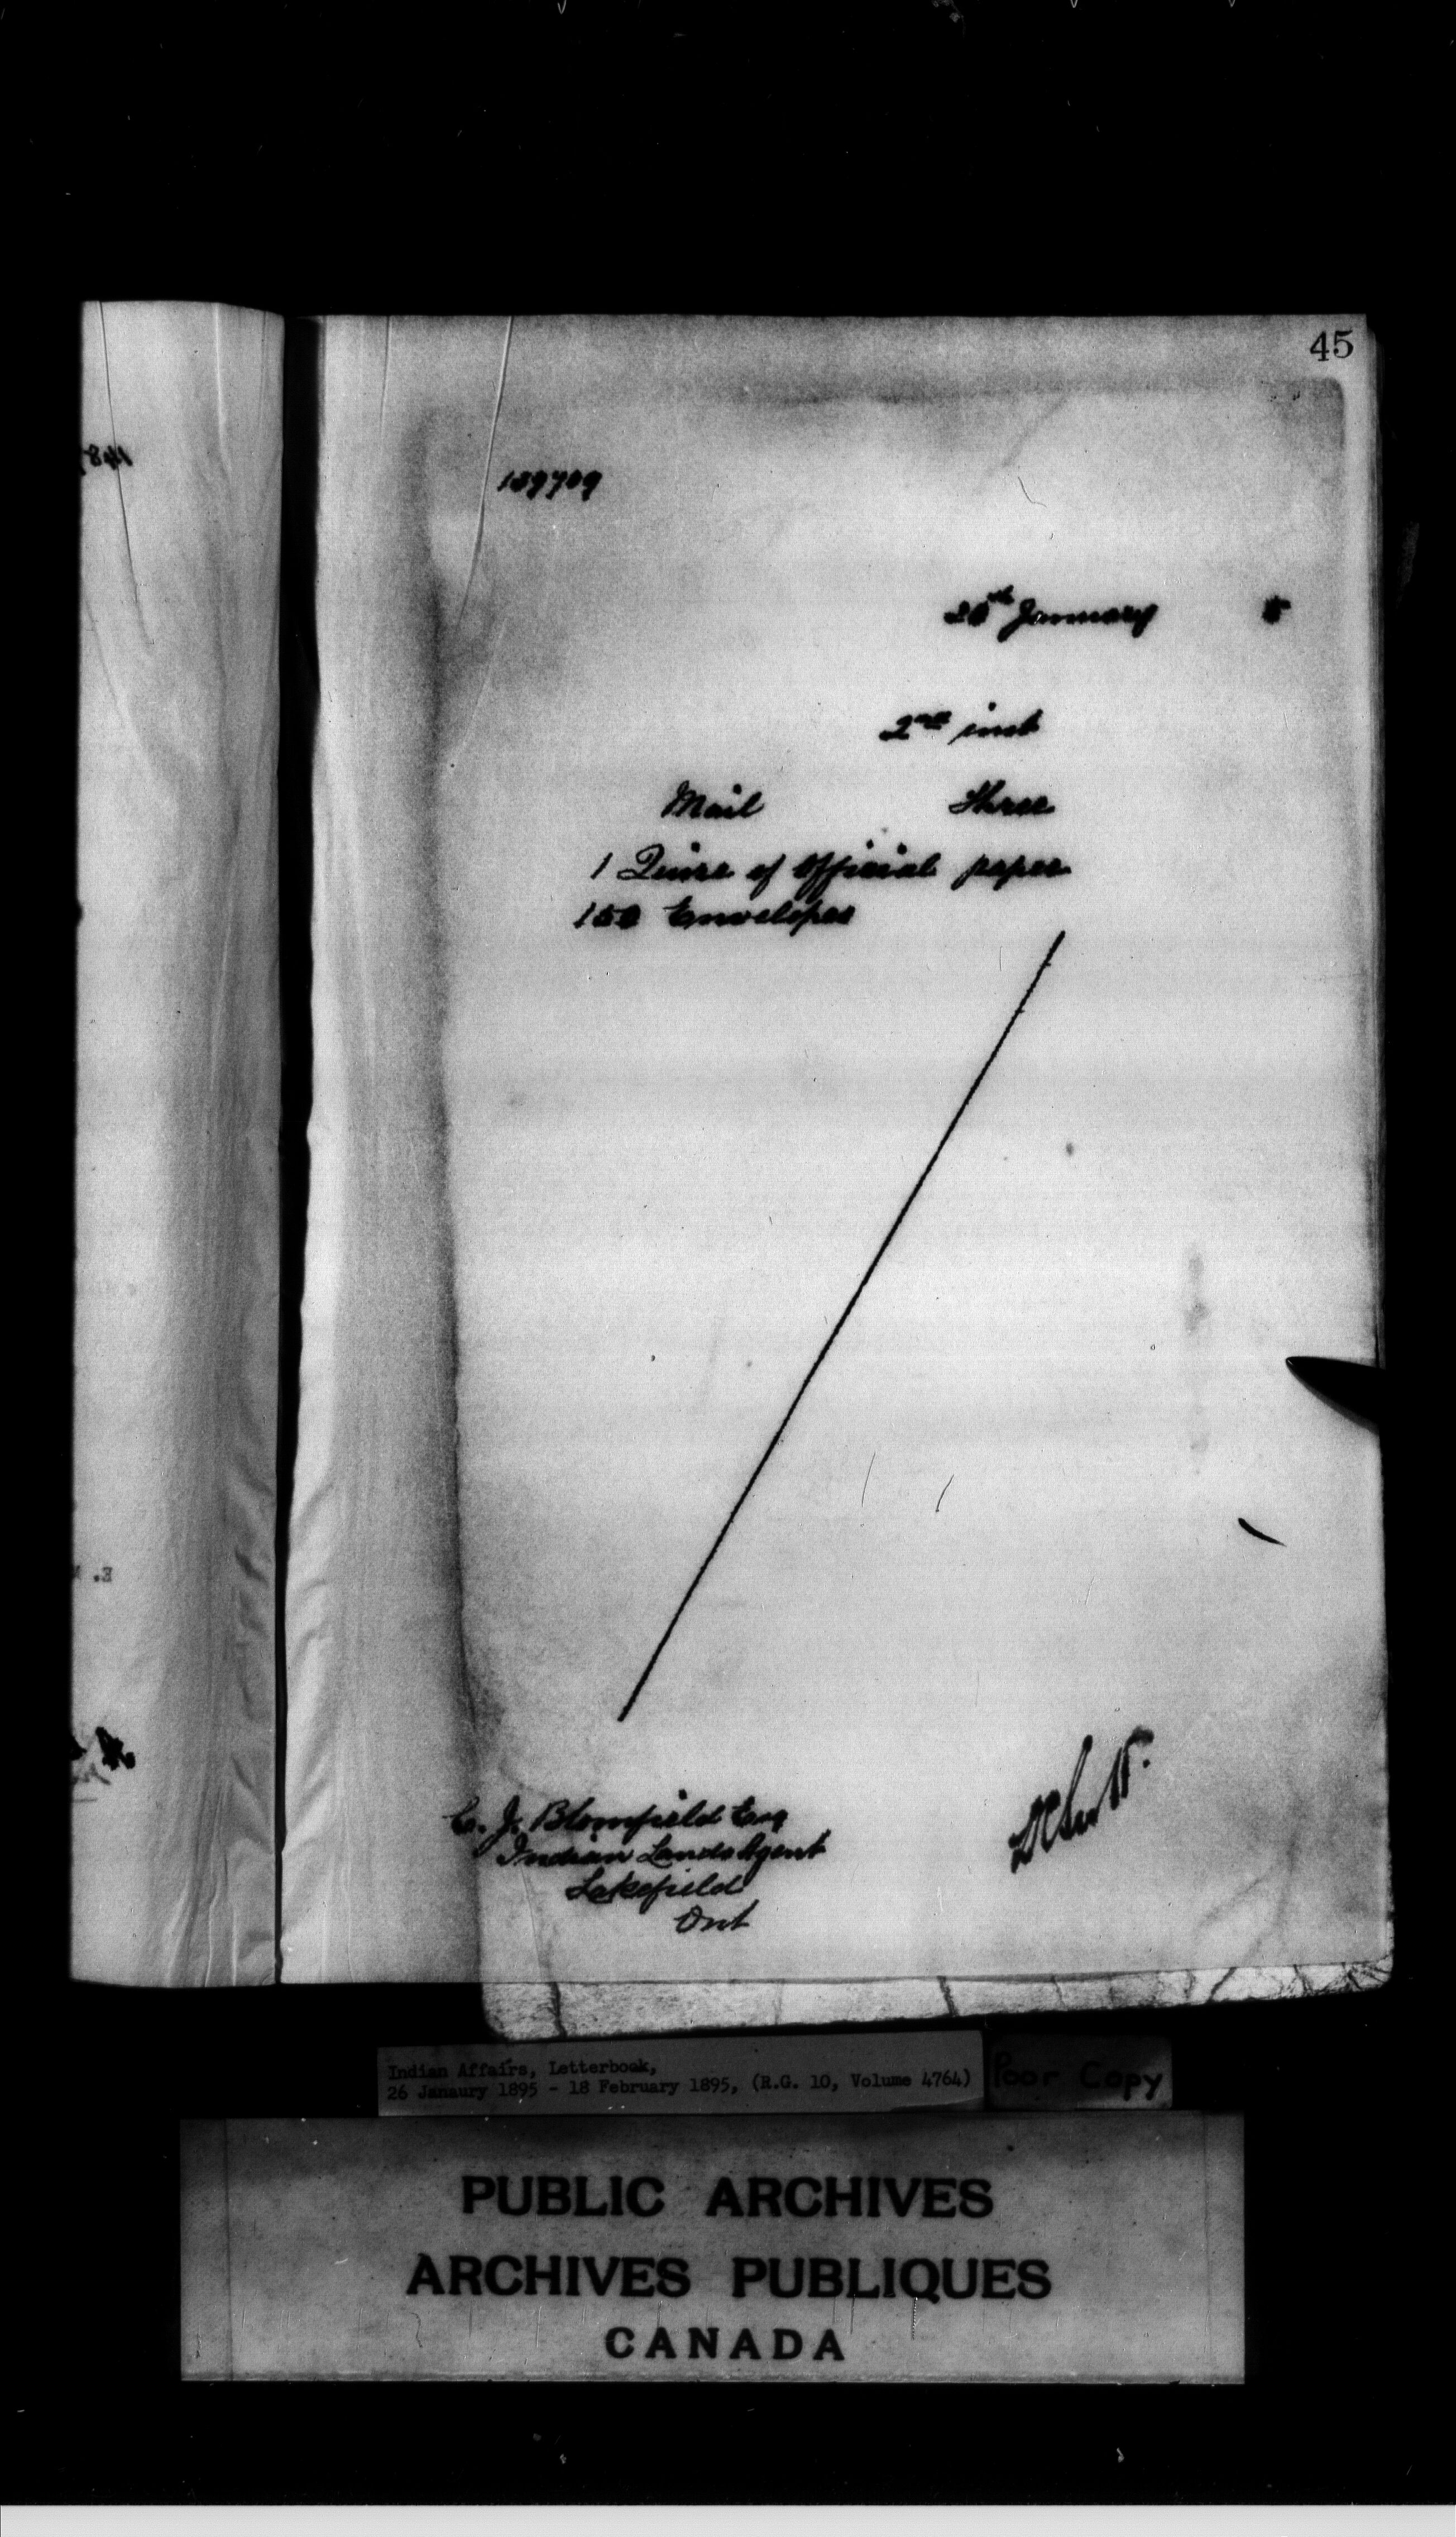 45
139709
26th January 5
2nd inst
Mail Three
1 Quire of Official paper
150 Envelopes
C. J. Blomfield Esq
Indian Lands Agent
Lakefield
Ont
Indian Affairs, Letterbook,
26 Janaury 1895 - 18 February 1895, (R.G. 10, Volume 4764)
Poor Copy
PUBLIC ARCHIVES
ARCHIVES PUBLIQUES
CANADA